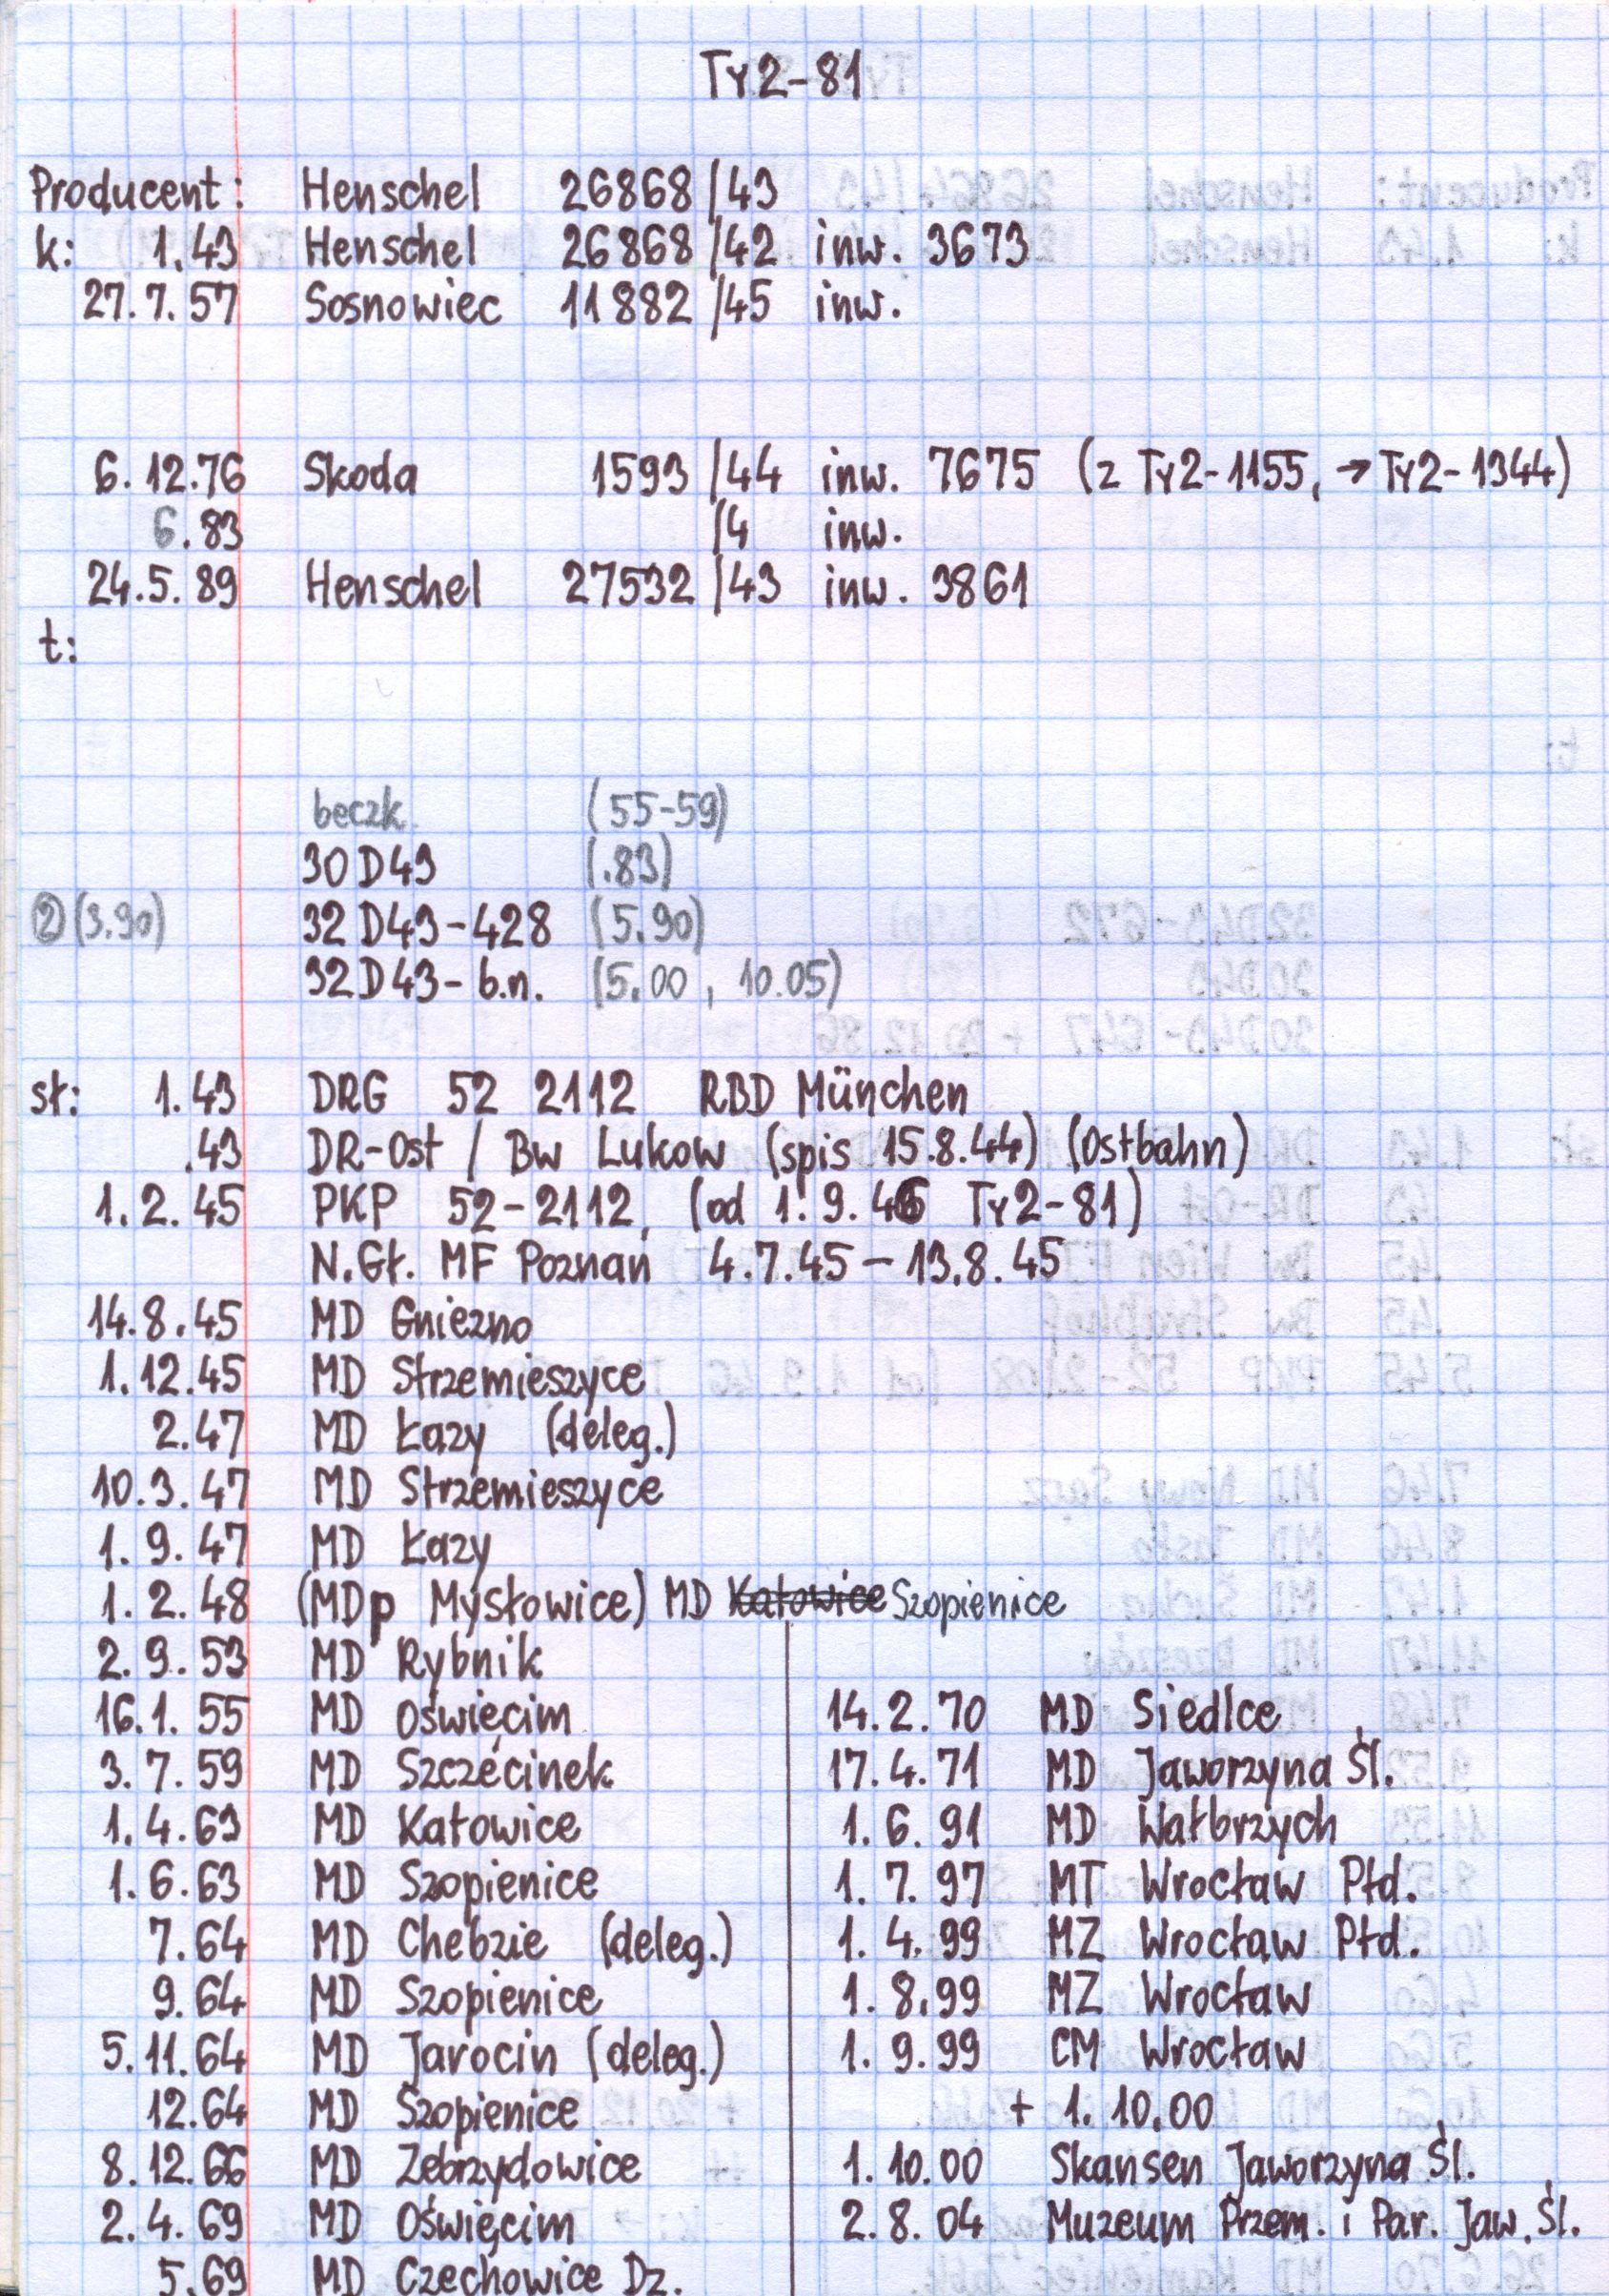 Ty2-81
Producent: Henschel 26868/43
k: 1.43 Henschel 26868/42 inw. 3673
27.7.57 Sosnowiec 11882/45 inw.
6.12.76 Skoda 1593/44 inw. 7675 (z Ty2-1155, → Ty2-1344)
6.83 /4 inw.
24.5.89 Henschel 27532/43 inw. 3861
t:
beczk. (55-59)
30D43 (.83)
② (3.90) 32D43-428 (5.90)
32D43- b.n. (5.00, 10.05)
sł: 1.43 DRG 52 2112 RBD München
.43 DR-Ost / Bw Lukow (spis 15.8.44) (Ostbahn)
1.2.45 PKP 52-2112, (od 1.9.46 Ty2-81)
N.Gł. MF Poznań 4.7.45 – 13.8.45
14.8.45 MD Gniezno
1.12.45 MD Strzemieszyce
2.47 MD Łazy (deleg.)
10.3.47 MD Strzemieszyce
1.9.47 MD Łazy
1.2.48 (MDp Mysłowice) MD Katowice Szopienice
2.9.53 MD Rybnik
16.1.55 MD Oświęcim
3.7.59 MD Szczecinek
1.4.63 MD Katowice
1.6.63 MD Szopienice
7.64 MD Chebzie (deleg.)
9.64 MD Szopienice
5.11.64 MD Jarocin (deleg.)
12.64 MD Szopienice
8.12.66 MD Zebrzydowice
2.4.69 MD Oświęcim
5.69 MD Czechowice Dz.
14.2.70 MD Siedlce
17.4.71 MD Jaworzyna Śl.
1.6.91 MD Wałbrzych
1.7.97 MT Wrocław Płd.
1.4.99 MZ Wrocław Płd.
1.8.99 MZ Wrocław
1.9.99 CM Wrocław
+ 1.10.00
1.10.00 Skansen Jaworzyna Śl.
2.8.04 Muzeum Przem. i Par. Jaw. Śl.